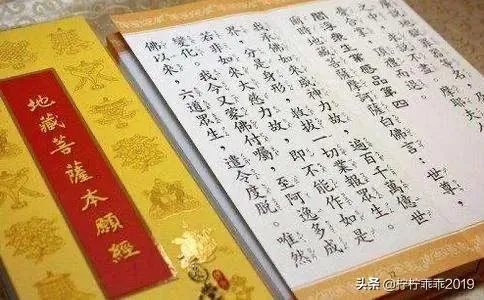 地藏菩薩本願經
之中，求說不盡。
合掌，頂禮而退。
閻浮眾生業感品第四
爾時地藏菩薩摩訶薩白佛言：世尊，
我承佛如來威神力故，遍百千萬億世
界，分是身形，救拔一切業報眾生。
若非如來大慈力故，即不能作如是
變化。我今又蒙佛付囑，至阿逸多成
佛以來，六道眾生，遣令度脫。唯然
头条 @柠柠乖乖2019